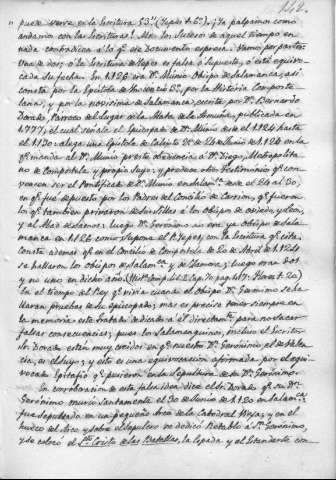 142.
puede verse en la Escritura 53ª (Yepes t. 6º). ¡Ya palpamos como
andarían con las Escrituras! Mas los sucesos de aquel tiempo en
nada contradicen a lo qº. ese documento expresa. Vamos por partes:
Una de dos; o la Escritura de Yepes es falsa o supuesta, o está equivo-
cada su fecha. En 1126 era Dº. Munio Obispo de Salamanca; así
consta por la Epístola de Inocencio 2º, por la Historia Composte-
lana, y por la novísima de Salamanca, escrita por Dº. Bernardo
Dorado, Párroco del lugar de la Mata de la Armuña, publicada en
1777, el cual señala el Episcopado de Dº. Munio desde el 1124 hasta
el 1130: alega una Epístola de Calixto 2º de 24 de Junio de 1124 en la
qº. manda al Dº. Munio preste obediencia a Dº. Diego, Metropolita-
no de Compostela y propio suyo; y produce otros testimonios qº. con-
vencen ser el Pontificado de Dº. Munio en Salamᶜᵃ. desde el 24 al 30,
en qº. fue depuesto por los Padres del Concilio de Carrión, qº. fueron
los qº. también privaron de sus Sillas a los obispos de Oviedo y León,
y al Abad de Samos: luego Dº. Gerónimo no era ya obispo de Sala-
manca en 1126 como supone el P. Yepes, en la Escritura qº. cita.
Consta además qº. en el Concilio de Compostela de 20 de Abril de 1124
se hallaron los obispos de Salamᶜᵃ. y de Zamora; luego eran dos
y no uno en dicho año. (Histª. Compostelª. Lib. 2º cap. 64 Florez t. 20)
En el tiempo del Rey qº. unía cuando el obispo Dº. Gerónimo se ha-
llaran pruebas de su Episcopado; mas es preciso tener siempre en
la memoria este trabajo de dicados et directum para no sacar
falsas consecuencias; pues los Salamanquinos, incluso el Escritor
Sr. Dorado están muy creidos en qº. nuestro Dº. Gerónimo, el de Valen-
cia, es el suyo; y esto es una equivocación afirmada por el equi-
vocado Epitafio qº. pusieron en la Sepultura de su Dº. Gerónimo.
En corroboración de esta falsa idea dice el Sr. Dorado qº. su Dº.
Gerónimo murió santamente el 30 de Junio de 1120 en Salamᶜᵃ.
fue sepultado en un pequeño Arco de la Catedral Vieja, y en el
hueco del Arco y sobre el Sepulcro se dedicó Retablo a Sⁿ. Gerónimo,
y se colocó el Sto. Cristo de las Batallas, la Espada y el Estandarte con